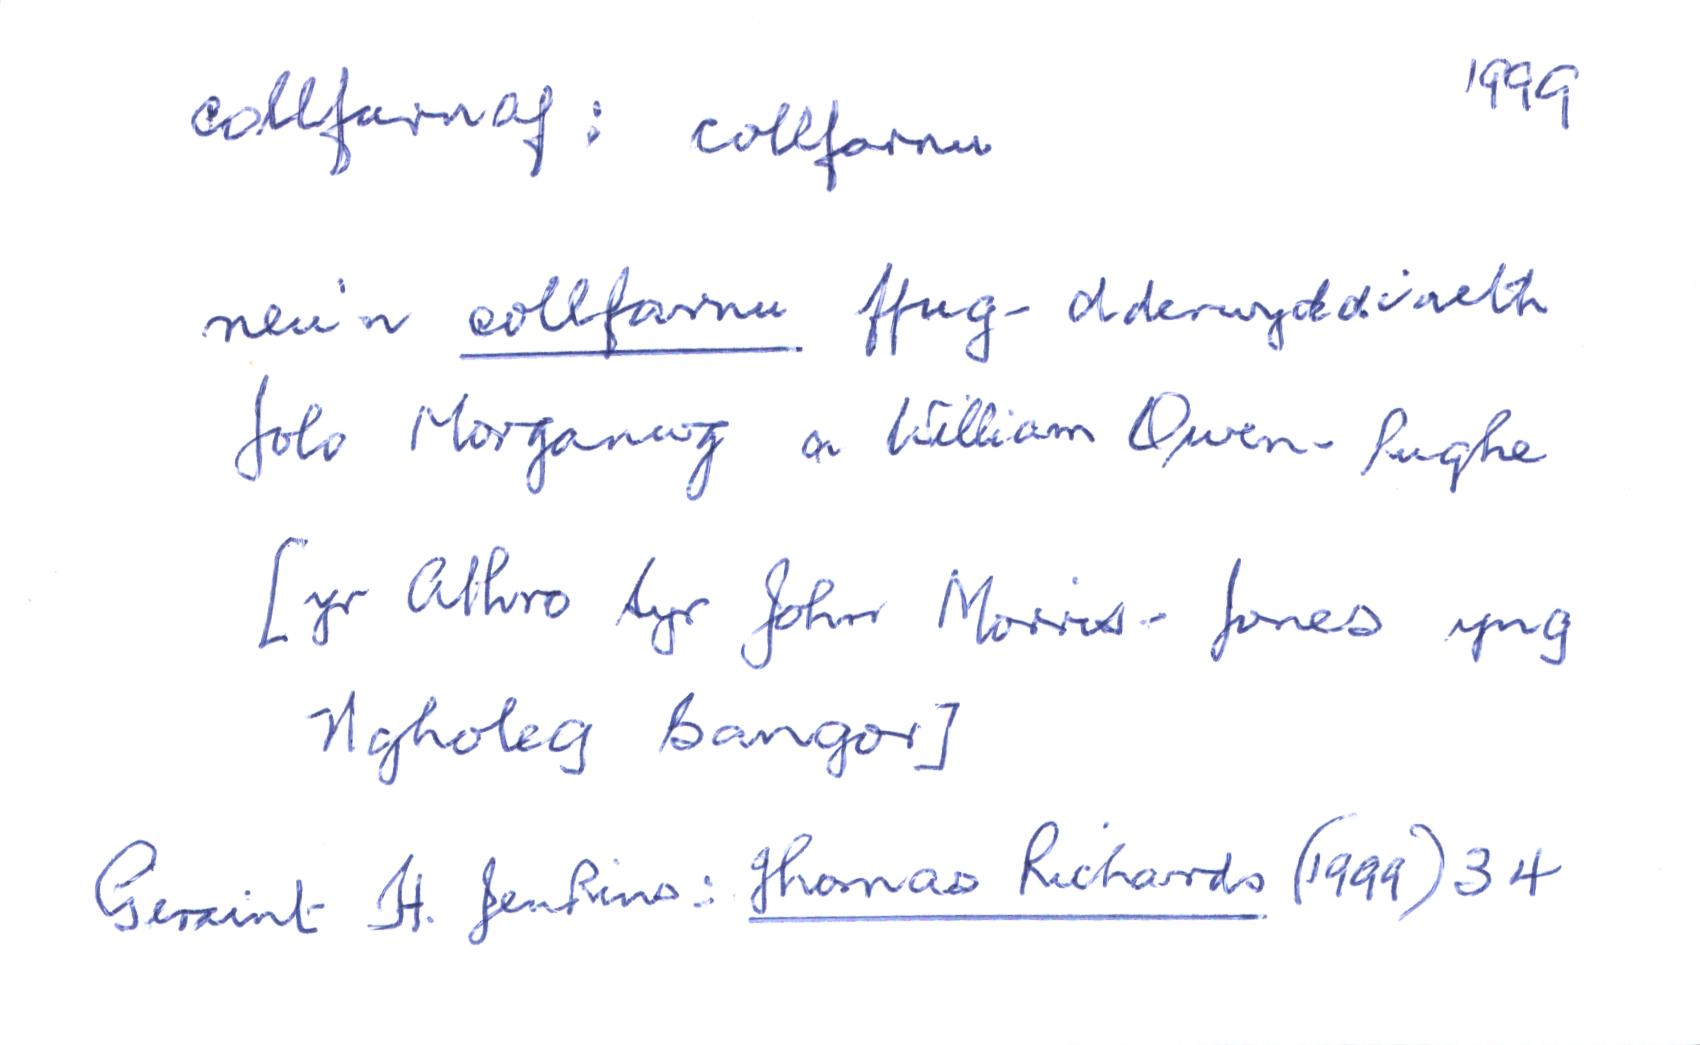 collfarnaf: collfarnu 1999
neu'n collfarnu ffug-dderwyddiaeth
Iolo Morganwg a William Owen-Pughe
[yr Athro Syr John Morris-Jones yng
Ngholeg Bangor]
Geraint H. Jenkins: Thomas Richards (1999) 34